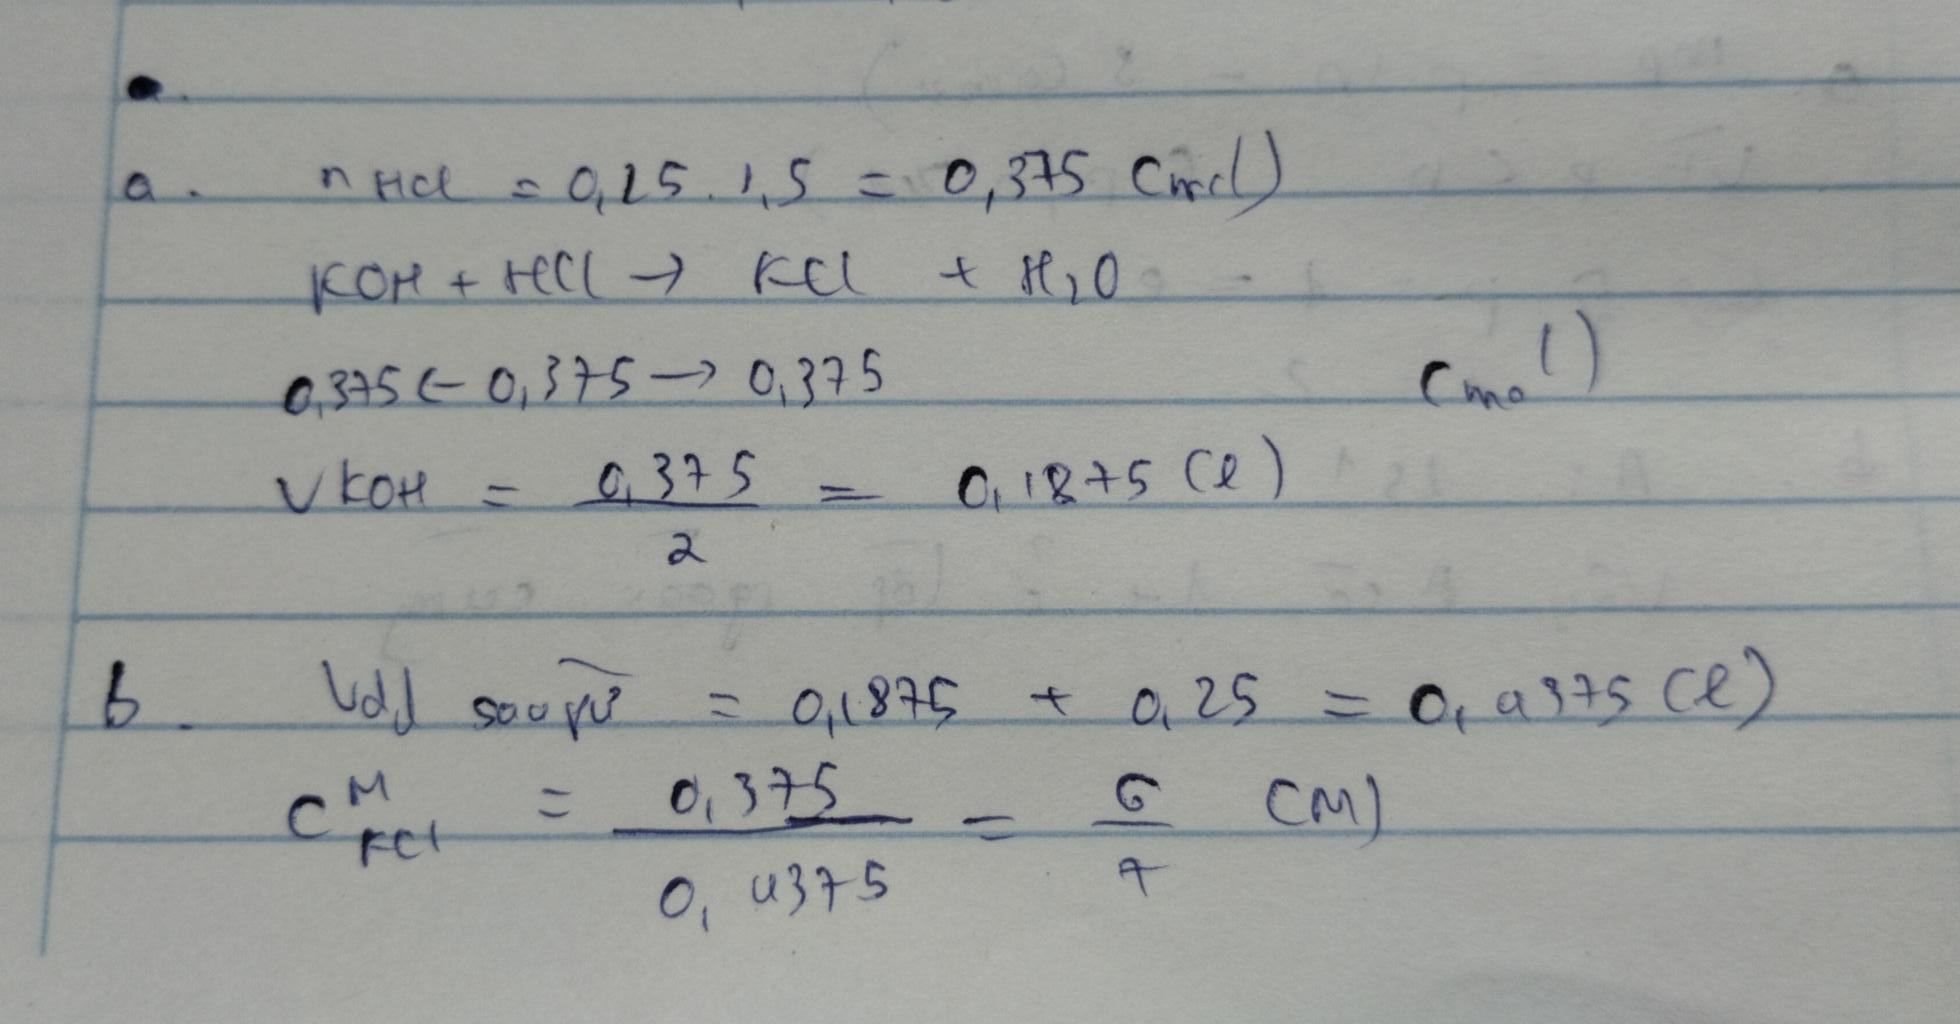 a. nHCl = 0,25 . 1,5 = 0,375 (mol)
KOH + HCl → KCl + H2O
0,375 ← 0,375 → 0,375 (mol)
VKOH = 0,375 / 2 = 0,1875 (l)
b. Vdd sau pứ = 0,1875 + 0,25 = 0,4375 (l)
CM KCl = 0,375 / 0,4375 = 6 / 7 (M)